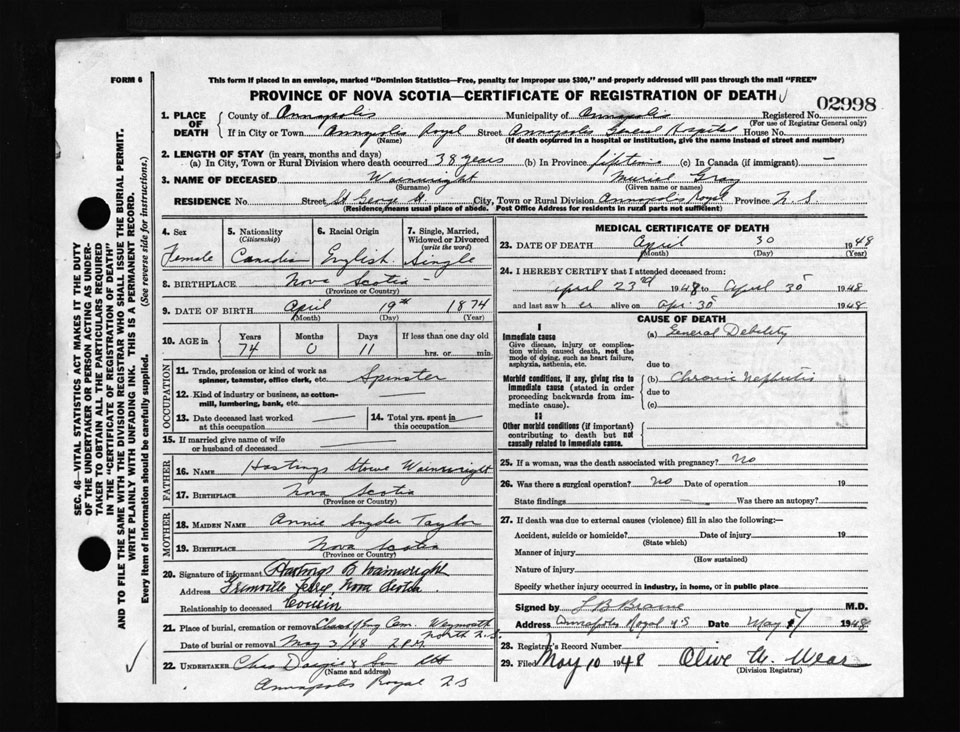 FORM 6
This form if placed in an envelope, marked "Dominion Statistics—Free, penalty for improper use $300," and properly addressed will pass through the mail "FREE"
PROVINCE OF NOVA SCOTIA—CERTIFICATE OF REGISTRATION OF DEATH
02998
1. PLACE OF DEATH
County of Annapolis Municipality of Annapolis Registered No.
(For use of Registrar General only)
If in City or Town Annapolis Royal Street Annapolis General Hospital House No.
(Name) (If death occurred in a hospital or institution, give the name instead of street and number)
2. LENGTH OF STAY (in years, months and days)
(a) In City, Town or Rural Division where death occurred 38 years (b) In Province (c) In Canada (if immigrant) —
3. NAME OF DECEASED Wainwright Muriel Gray
(Surname) (Given name or names)
RESIDENCE No. Street St George St City, Town or Rural Division Annapolis Royal Province N.S.
(Residence means usual place of abode. Post Office Address for residents in rural parts not sufficient)
4. Sex
Female
5. Nationality
(Citizenship)
Canadian
6. Racial Origin
English
7. Single, Married, Widowed or Divorced
(write the word)
Single
8. BIRTHPLACE Nova Scotia
(Province or Country)
9. DATE OF BIRTH April 19th 1874
(Month) (Day) (Year)
10. AGE in Years Months Days If less than one day old
74 0 11 hrs. or min.
OCCUPATION
11. Trade, profession or kind of work as spinner, teamster, office clerk, etc. Spinster
12. Kind of industry or business, as cotton-mill, lumbering, bank, etc. —
13. Date deceased last worked at this occupation —
14. Total yrs. spent in this occupation —
15. If married give name of wife or husband of deceased —
FATHER
16. NAME Hastings Stowe Wainwright
17. BIRTHPLACE Nova Scotia
(Province or Country)
MOTHER
18. MAIDEN NAME Annie Snyder Taylor
19. BIRTHPLACE Nova Scotia
(Province or Country)
20. Signature of informant Hastings B Wainwright
Address Granville Ferry, Nova Scotia
Relationship to deceased Cousin
21. Place of burial, cremation or removal Cem. Weymouth North N.S.
Date of burial or removal May 3/48 2 P.M.
22. UNDERTAKER Chas & Son
(Name and address)
Annapolis Royal N S
MEDICAL CERTIFICATE OF DEATH
23. DATE OF DEATH April 30 1948
(Month) (Day) (Year)
24. I HEREBY CERTIFY that I attended deceased from:
April 23rd 1948 to April 30 1948
and last saw her alive on Apr. 30 1948
CAUSE OF DEATH
I
Immediate cause
Give disease, injury or complication which caused death, not the mode of dying, such as heart failure, asphyxia, asthenia, etc.
(a) General Debility
due to
Morbid conditions, if any, giving rise to immediate cause (stated in order proceeding backwards from immediate cause).
(b) Chronic Nephritis
due to
(c)
II
Other morbid conditions (if important) contributing to death but not causally related to immediate cause.
25. If a woman, was the death associated with pregnancy? No
26. Was there a surgical operation? No Date of operation 19
State findings Was there an autopsy?
27. If death was due to external causes (violence) fill in also the following:—
Accident, suicide or homicide? Date of injury 19
(State which)
Manner of injury
(How sustained)
Nature of injury
Specify whether injury occurred in industry, in home, or in public place
Signed by L B Braine M.D.
Address Annapolis Royal N S Date May 1948
28. Registrar's Record Number
29. Filed May 10 1948 Olive M. Wear
(Division Registrar)
SEC. 46—VITAL STATISTICS ACT MAKES IT THE DUTY
OF THE UNDERTAKER OR PERSON ACTING AS UNDER-
TAKER TO OBTAIN ALL THE PARTICULARS REQUIRED
IN THE "CERTIFICATE OF REGISTRATION OF DEATH"
AND TO FILE THE SAME WITH THE DIVISION REGISTRAR WHO SHALL ISSUE THE BURIAL PERMIT.
WRITE PLAINLY WITH UNFADING INK. THIS IS A PERMANENT RECORD.
Every item of information should be carefully supplied. (See reverse side for instructions.)